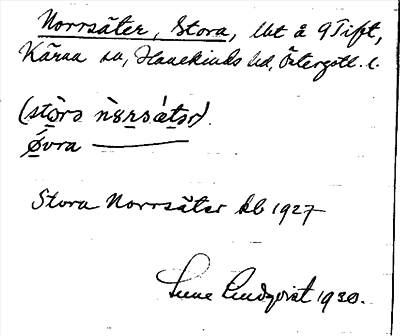 Norrsäter, Stora, lht å 9 Tift,
Kärna sn, Hanekinds hd, Östergötl. l.
(stòrə nòrsǽtər).
Øvra ———
Stora Norrsäter kb 1927
Sune Lindqvist 1930.